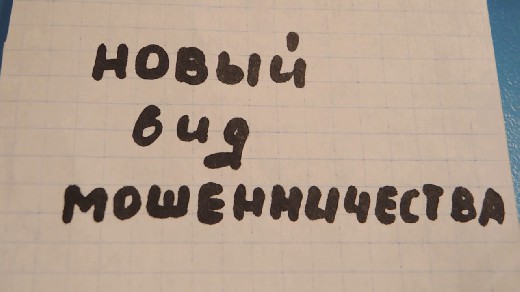 новый
вид
мошенничества